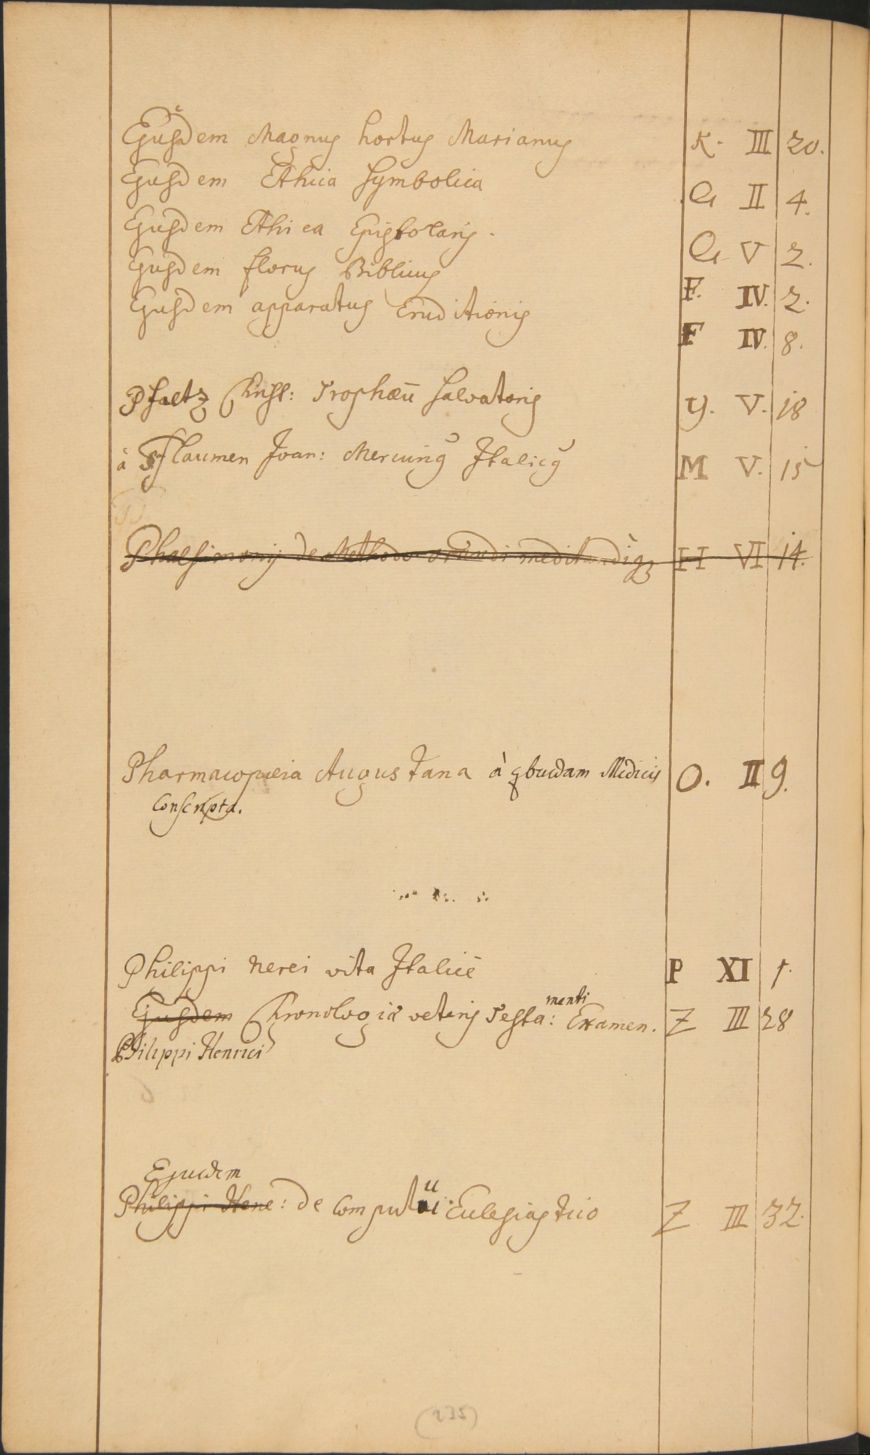 Ejusdem Magnus hortus Marianus K. III 20.
Ejusdem Ethica Symbolica G II 4.
Ejusdem Ethica Epistolaris. G V 2.
Ejusdem florus Biblicus F. IV. 2.
Ejusdem apparatus Eruditionis F IV. 8.
Pfaltz Christ: Trophæū Salvatoris Y. V. 18
à Pflaumen Joan: Mercurius Italicus M V. 15
de Methodo H VI 14.
Pharmacopæia Augustana à qbusdam Medicis O. II 9.
Conscripta.
Philippi Nerei vita Italicè P XI 1.
menti
Ejusdem Chronologiæ veteris Testa: Examen. Z III 28
Philippi Henrici
Ejusdem
Philippi Hene: de Computu Eclesiastico Z III 32.
(235)